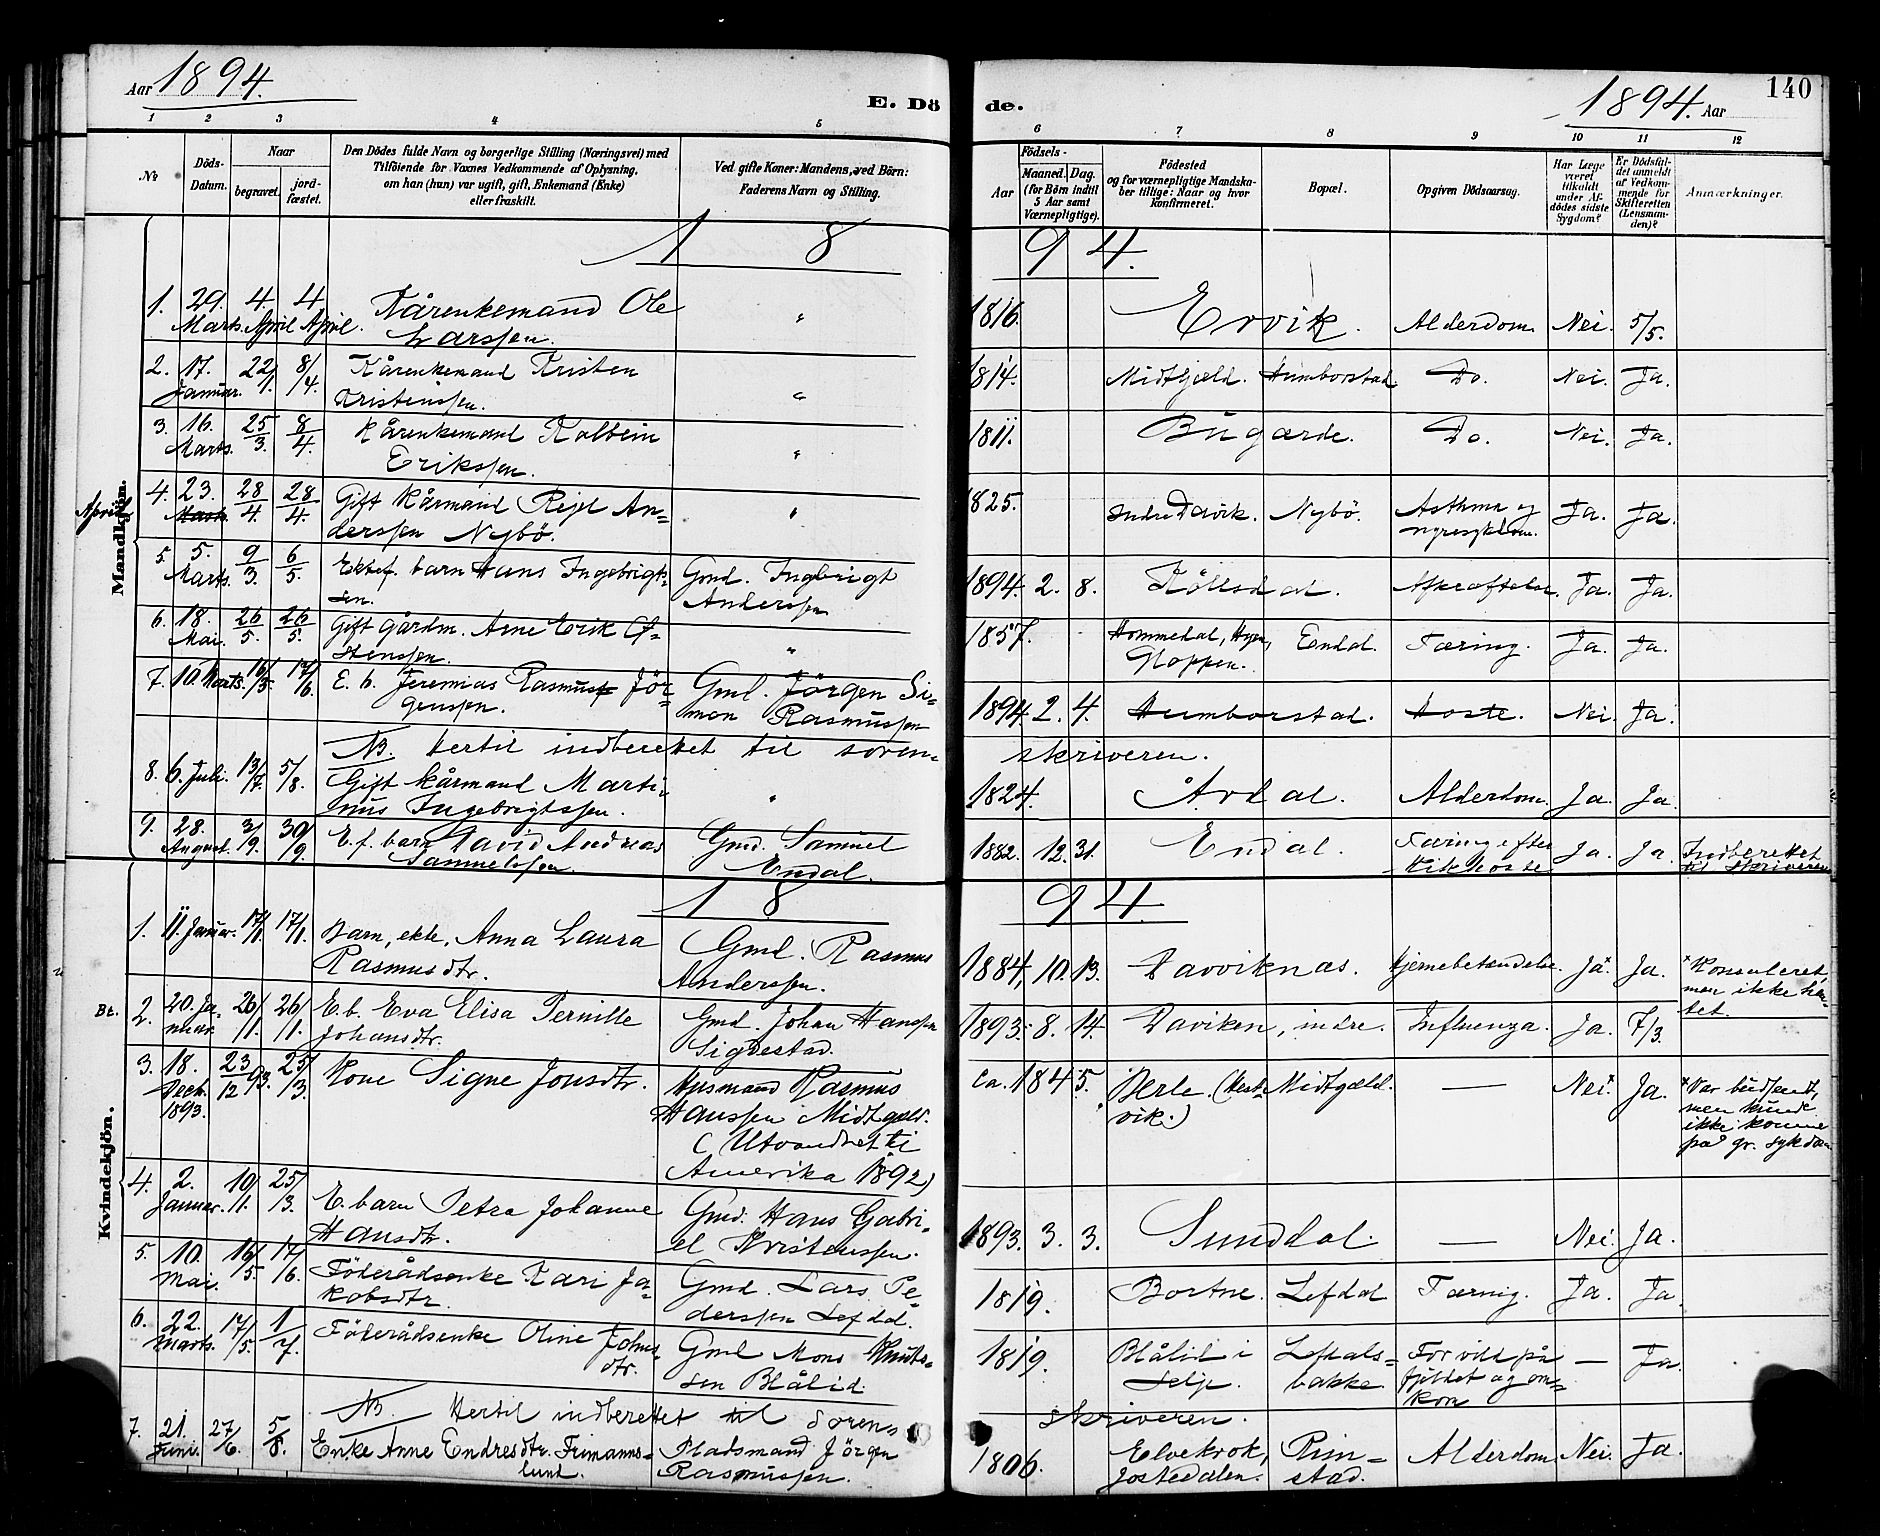 Aar 1894.
E. Dö
de.
1894. Aar
140
1 2 3 4 5
6 7 8 9 10 11 12
No
Döds-Datum.
Naar
begravet.
jord-fæstet.
Den Dödes fulde Navn og borgerlige Stilling (Næringsvei) med
Tilföiende for Voxnes Vedkommende af Oplysning,
om han (hun) var ugift, gift, Enkemand (Enke)
eller fraskilt.
Ved gifte Koner: Mandens, ved Börn:
Faderens Navn og Stilling.
Födsels-
Aar
Maaned. Dag.
(for Börn indtil
5 Aar samt
Værnepligtige).
Födested
og for værnepligtige Mandska-
ber tillige: Naar og hvor
konfirmeret.
Bopæl.
Opgiven Dödsaarsag.
Har Læge
været
tilkaldt
under Af-
dödes sidste
Sygdom?
Er Dödsfal-
det anmeldt
af Vedkom-
mende for
Skifteretten
(Lensman-
den)?
Anmærkninger.
Mandkjön.
1894.
1. 29. Marts. 4. April 4 April. Kårenkemand Ole Larssen. " 1816. Ervik. Alderdom. Nei. 5/5.
2. 17. Januar. 22/1. 8/4. Kårenkemand Kristen Kristenssen. " 1814. Midtgjæld. Humborstad Do. Nei. Ja.
3. 16. Marts. 25/3. 8/4. Kårenkemand Kolbein Erikssen. " 1811. Bugærde. Do. Nei. Ja.
April
4. 23. Marts 28/4. 28/4. Gift Kårmand Rejel An-
derssen Nybö. " 1825. Indre Davik. Nybö. Asthma og nyresykdom. Ja. Ja.
5. 5. Marts. 9/3. 6/5. Ektef. barn Hans Ingebrigt-
sen. Gmd. Ingbrigt Anderssen 1894. 2. 8. Afkræftelse. Ja. Ja.
6. 18. Mai. 26/5. 26/5. Gift gårdm. Arne Erik Ö-
stenssen. " 1857. Hommedal, Hyen, Gloppen. Endal. Tæring. Ja. Ja.
7. 10. Marts. 16/3. 17/6. E. b. Jeremias Rasmuss Jör-
genssen. Gmd. Jörgen Si-
mon Rasmussen 1894. 2. 4. Humborstad. Hoste. Nei. Ja.
NB. Hertil indberettet til soren-
skriveren.
8. 6. Juli. 13/7. 5/8. Gift Kårmand Marti-
nus Ingebrigtssen. " 1824. Årdal. Alderdom. Ja. Ja.
9. 28. August. 3/9. 30/9. E. f. barn David Andreas Samuelssen. Gmd. Samuel Endal. 1882. 12. 31. Endal. Tæring efter Kikhoste Ja. Ja. Indberettet til Skriveren
Kvindekjön.
1894.
1. 11. Januar. 17/1. 17/1. Barn, ekte, Anna Laura Rasmusdtr. Gmd. Rasmus Anderssen. 1884, 10. 13. Davviknæs. Hjernebetændelse. Ja.x Ja. x Konsuleret, men ikke hen-
tet.
Bt.
2. 20. Ja-
nuar. 26/1. 26/1. E. b. Eva Elisa Pernille Johansdtr. Gmd. Johan Hanssen Sigdestad. 1893. 8. 14. Daviken, indre. Influenza. Ja. 7/3.
3. 18. Decb. 1893. 23/12 93. 25/3. Kone Signe Jonsdtr. Husmand Rasmus Hanssen Midtgjæld. (Utvandret ti Amerika 1892) ca. 1845. Berle. (Hest-
vik.) Midtgjæld. — Nei.x Ja. x Var budsendt, men kunde ikke komme på gr. sykdom
4. 2. Januar. 10/1. 25/3. E. barn Petra Johanne Hansdtr. Gmd. Hans Gabri-
el Kristenssen. 1893. 3. 3. Sunddal. — Nei. Ja.
5. 10. Mai. 16/5. 17/6. Föderådsenke Kari Ja-
kobsdtr. Gmd. Lars Pe-
derssen Lefdal. 1819. Bortne. Lefdal Tæring. Ja. Ja.
6. 22. Marts. 17/5. 1/7. Föderådsenke Oline Johns-
dtr. Gmd Mons Knuts-
sen Blålid. 1819. Blålid i Selje. Lefdals-
bakke. For vild på fjeldet og om-
kom — Ja.
NB. Hertil indberettet til Sorens
skriveren.
7. 21. Juni. 27/6. 5/8. Enke Anne Endresdtr. Frimanns-
lund. Pladsmand Jörgen Rasmussen. 1806. Elvekrok, Jostedalen. Rim-
stad. Alderdom Nei. Ja.